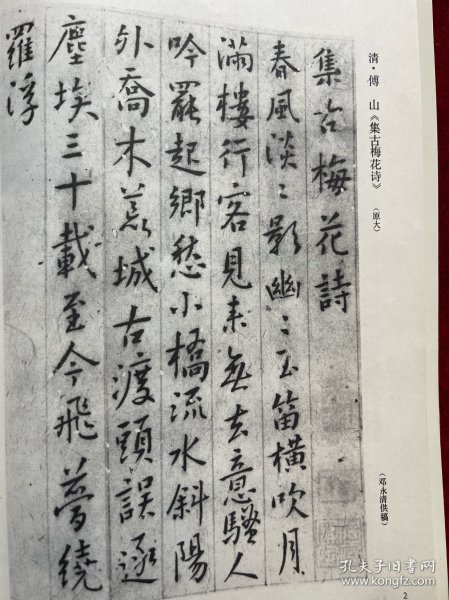 清·傅 山《集古梅花诗》 （原大）
（邓永清供稿）
集古梅花詩
春風淡〻影幽〻玉笛橫吹月
滿樓行客見來無去意騷人
吟罷起鄉愁小橋流水斜陽
外喬木荒城古渡頭誤逐
塵埃三十載至今飛夢繞
羅浮
2
孔夫子旧书网
book.kongfz.com